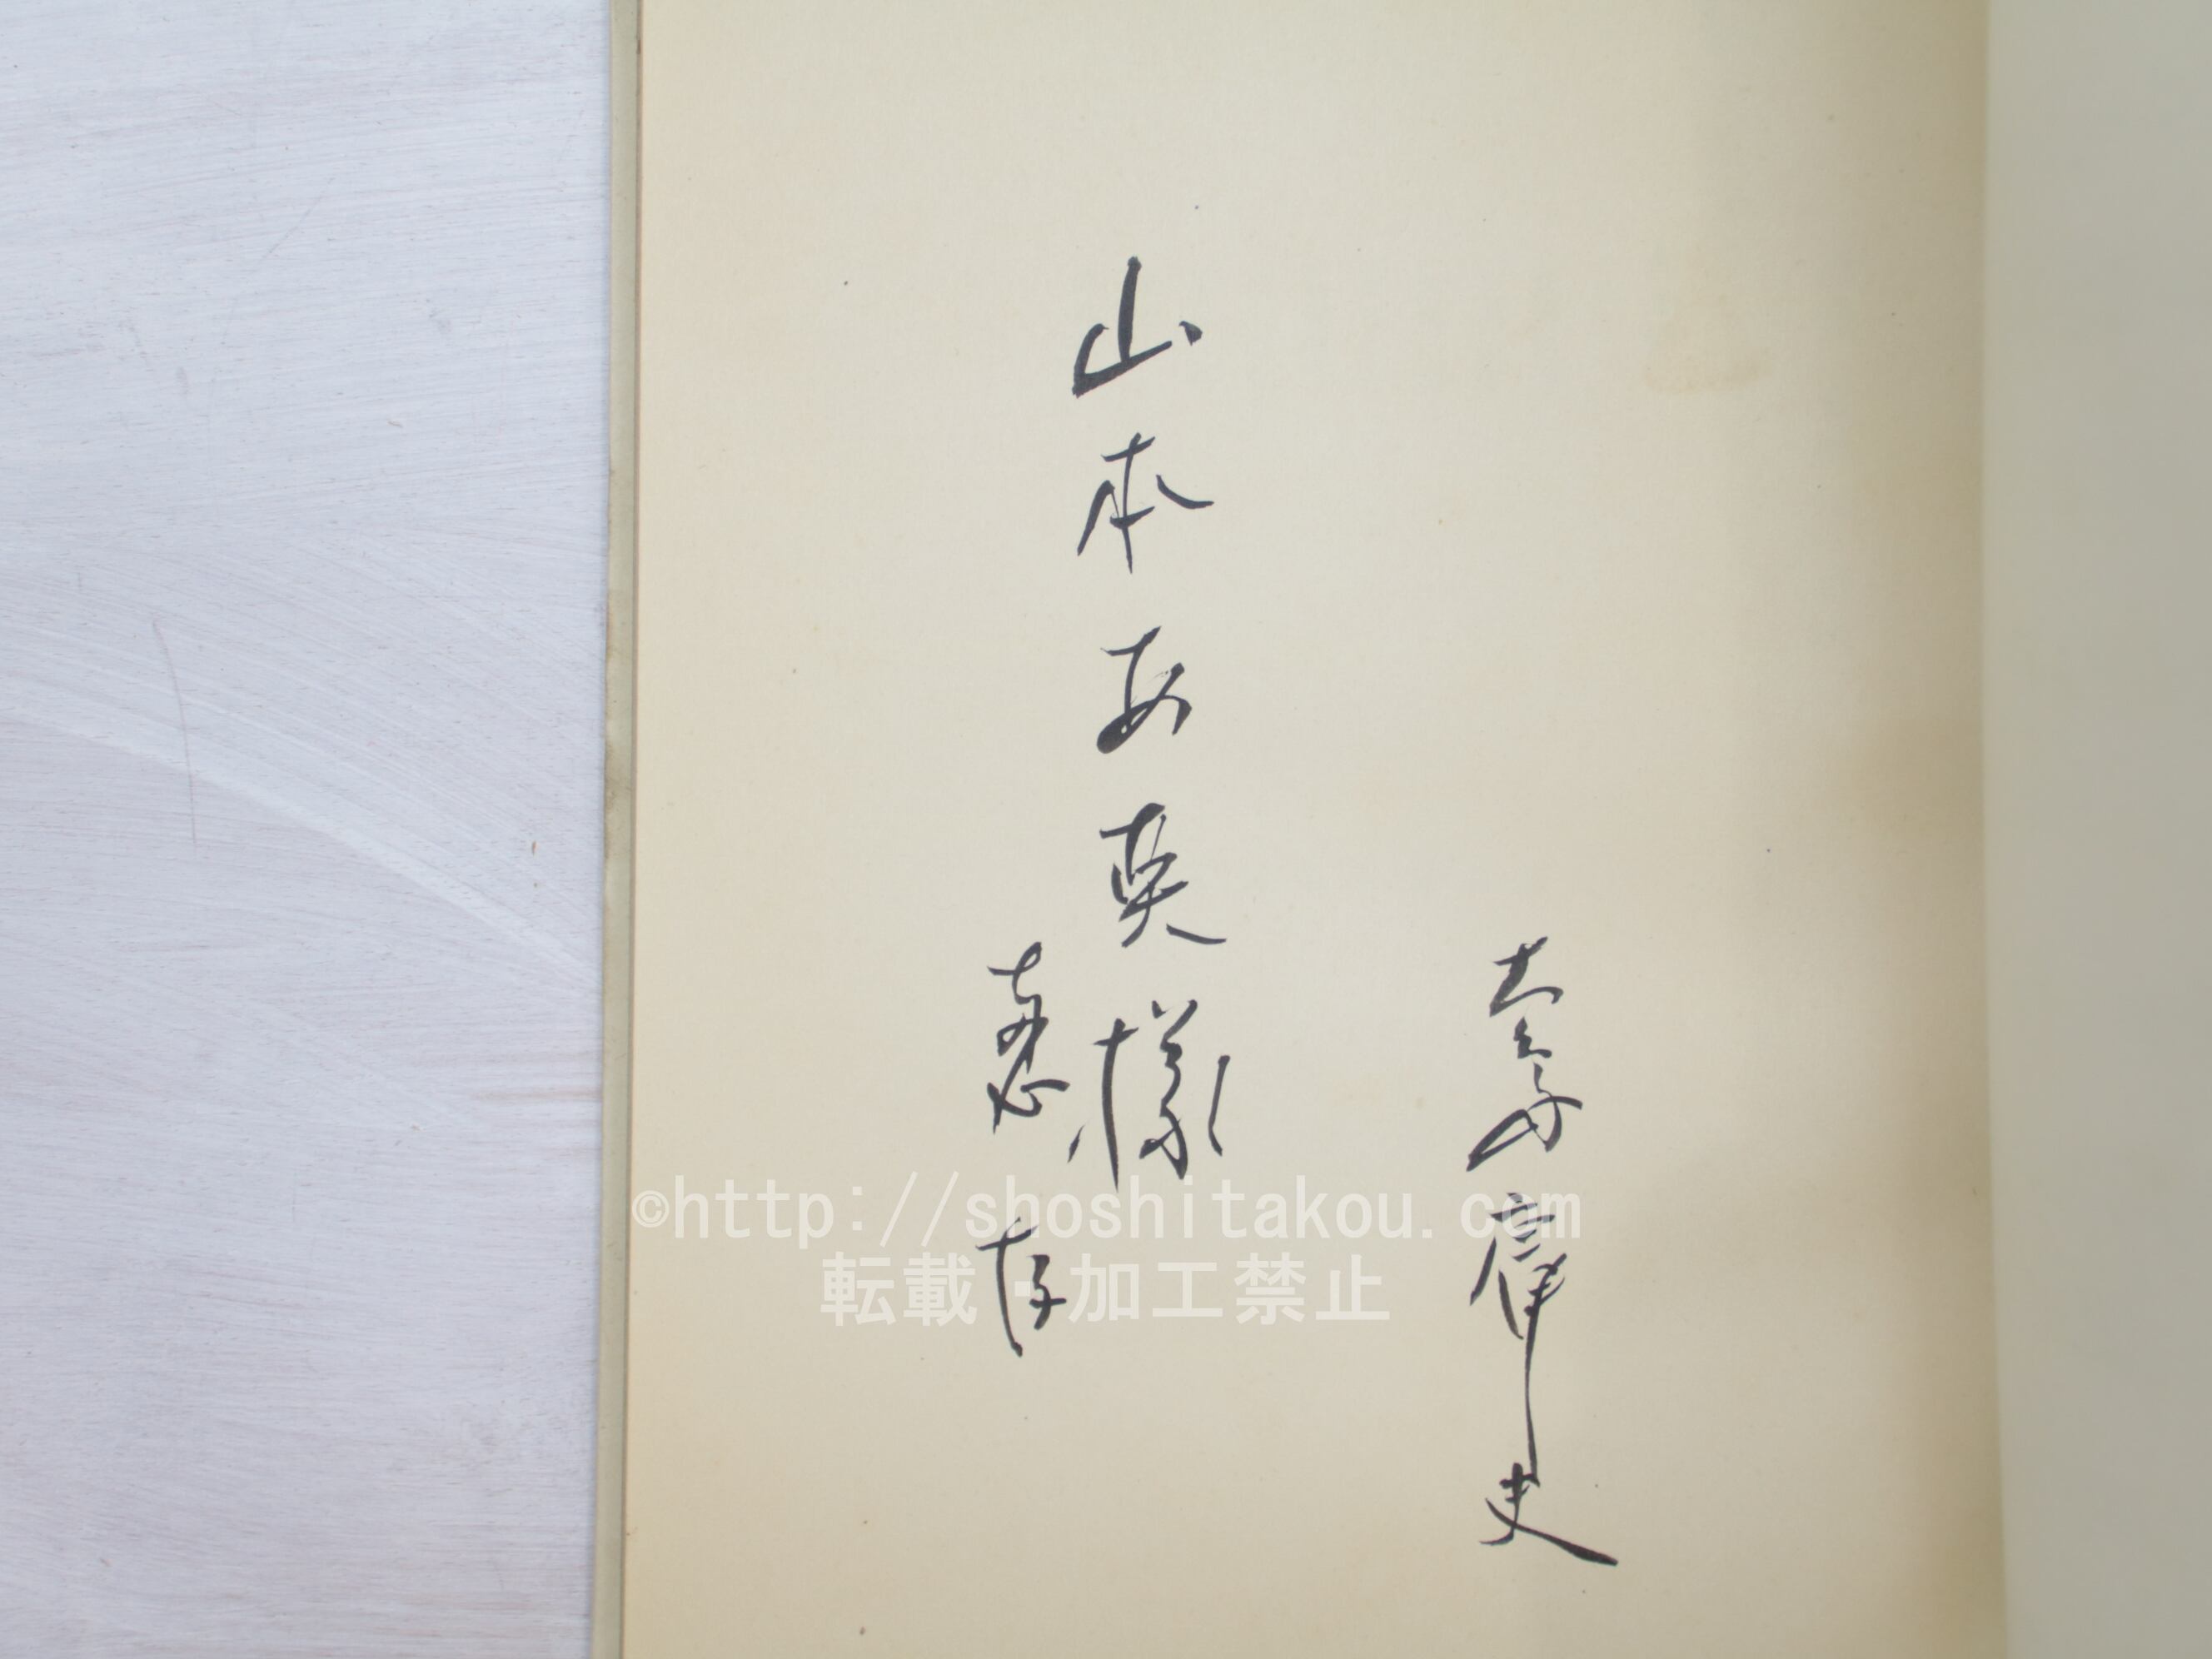 山本安英様
恵存
©http://shoshitakou.com
転載・加工禁止